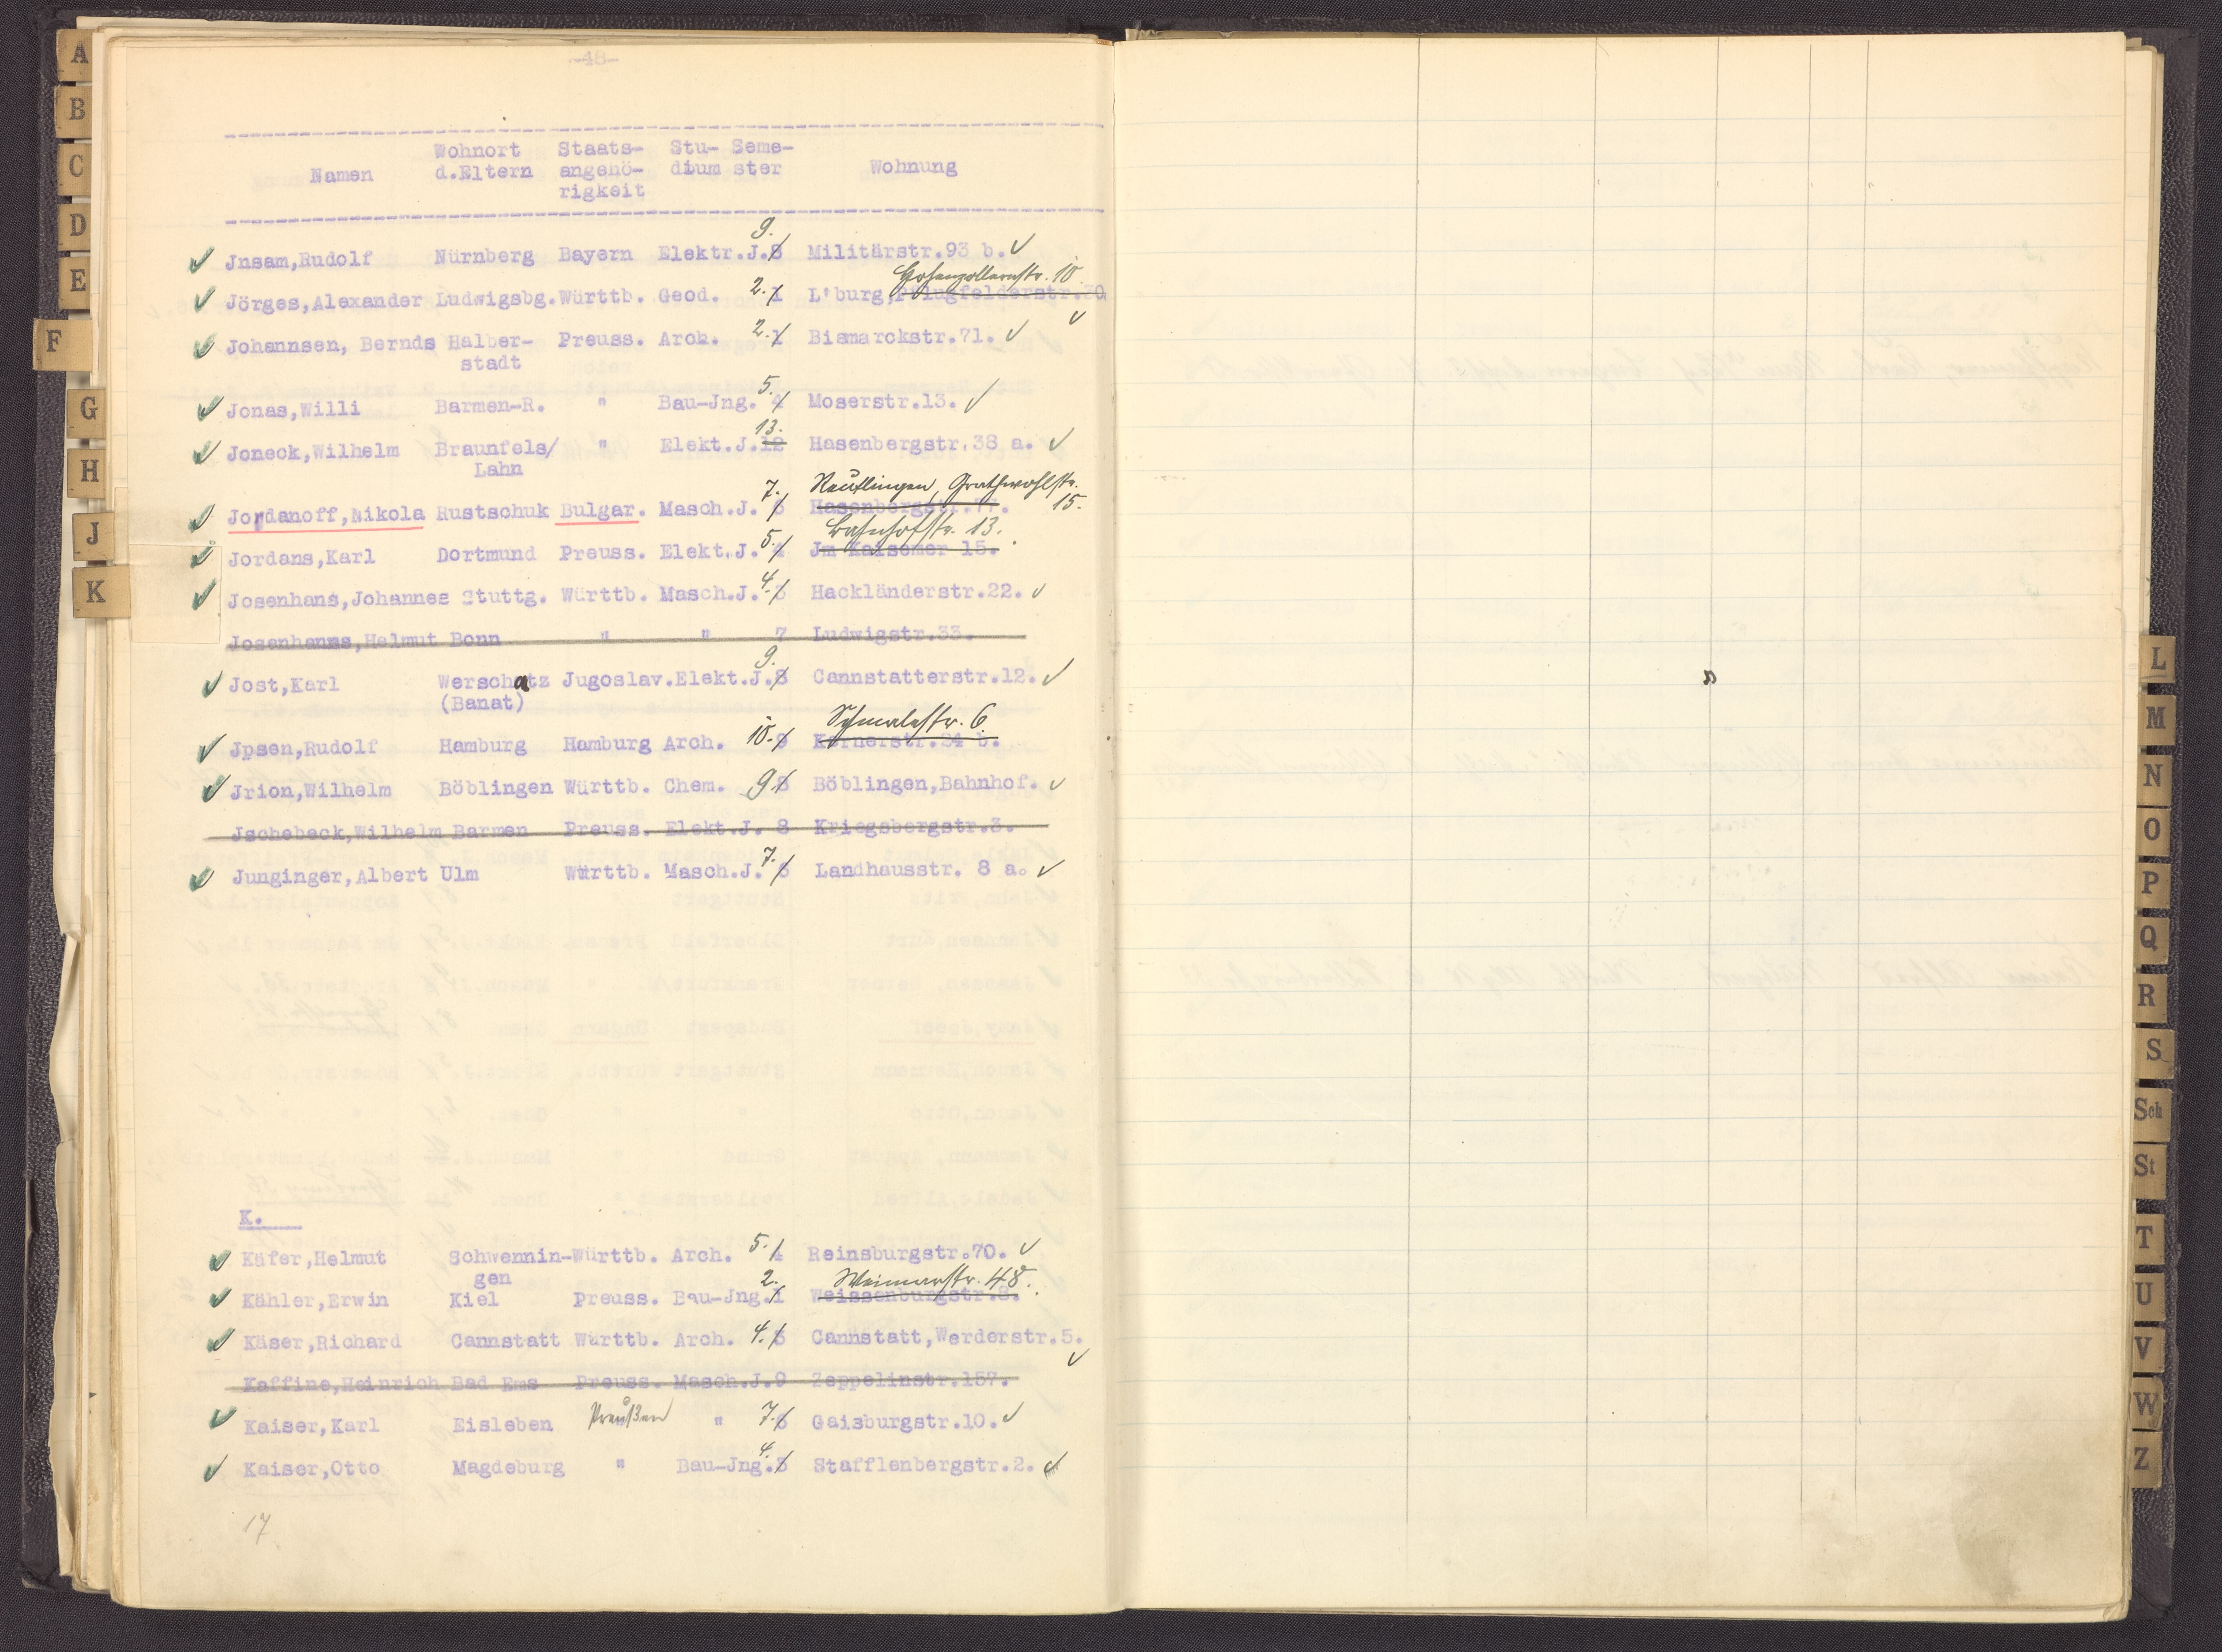 -48-
Wohnort Staats- Stu- Seme-
Namen d.Eltern angehö- dium ster Wohnung
rigkeit
9.
Jnsam,Rudolf Nürnberg Bayern Elektr.J.8 Militärstr.93 b.
Hohenzollernstr. 10
Jörges,Alexander Ludwigsbg.Württb. Geod. 2. 1 L'burg,Pflugfelderstr.30
Johannsen, Bernds Halber- Preuss. Arch. 2. 1 Bismarckstr.71.
stadt
5.
Jonas,Willi Barmen-R. " Bau-Jng. 4 Moserstr.13.
13.
Joneck,Wilhelm Braunfels/ " Elekt.J.12 Hasenbergstr.38 a.
Lahn
7. Reutlingen, Grathwohlstr.
15.
Jordanoff,Nikola Rustschuk Bulgar. Masch.J. 6 Hasenbergstr.77.
5. Bahnhofstr. 13.
Jordans,Karl Dortmund Preuss. Elekt.J. 4 Jm Kaisemer 15.
4.
Josenhans,Johannes Stuttg. Württb. Masch.J. 3 Hackländerstr.22.
Josenhanns,Helmut Bonn " " 7 Ludwigstr.33.
9.
Jost,Karl Werschatz Jugoslav.Elekt.J.8 Cannstatterstr.12.
(Banat)
Schmalestr. 6
Jpsen,Rudolf Hamburg Hamburg Arch. 10. 9 Kernerstr.24 b.
Jrion,Wilhelm Böblingen Württb. Chem. 9 8 Böblingen,Bahnhof.
Jschebeck,Wilhelm Barmen Preuss. Elekt.J. 8 Kriegsbergstr.3.
7.
Junginger,Albert Ulm Württb. Masch.J. 6 Landhausstr. 8 a.
K.
Käfer,Helmut Schwennin-Württb. Arch. 5. 4 Reinsburgstr.70.
gen
2. Weimarstr. 48.
Kähler,Erwin Kiel Preuss. Bau-Jng.1 Weissenburgstr.8.
Käser,Richard Cannstatt Württb. Arch. 4. 3 Cannstatt,Werderstr.5.
Kaffine,Heinrich Bad Ems Preuss. Masch.J.9 Zeppelinstr.157.
Kaiser,Karl Eisleben Preußen " 7. 6 Gaisburgstr.10.
4.
Kaiser,Otto Magdeburg " Bau-Jng.3 Stafflenbergstr.2.
17
A
B
C
D
E
F
G
H
J
K
L
M
N
O
P
Q
R
S
Sch
St
T
U
V
W
Z